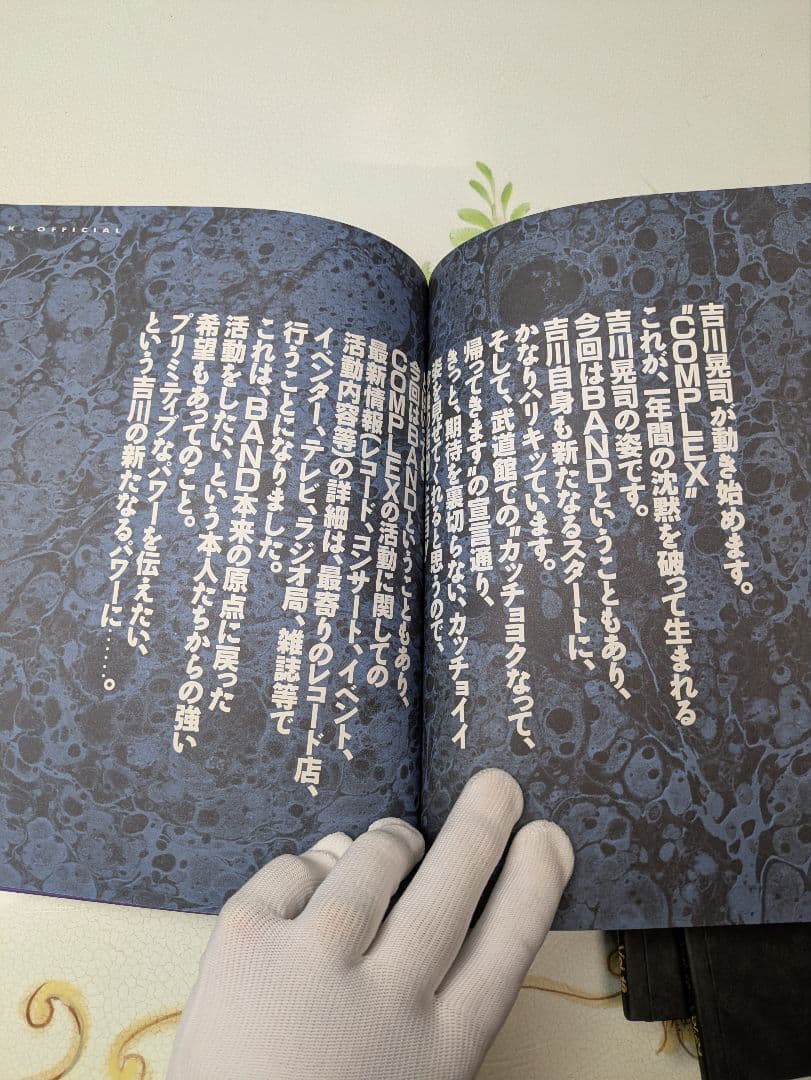 吉川晃司が動き始めます。
“COMPLEX”
これが、一年間の沈黙を破って生まれる
吉川晃司の姿です。
今回はBANDということもあり、
吉川自身も新たなるスタートに、
かなりハリキッています。
そして、武道館での“カッチョヨクなって、
帰ってきます”の宣言通り、
きっと、期待を裏切らない、カッチョイイ
姿を見せてくれると思うので、
今回はBANDということもあり、
COMPLEXの活動に関しての
最新情報(レコード、コンサート、イベント、
活動内容等)の詳細は、最寄りのレコード店、
イベンター、テレビ、ラジオ局、雑誌等で
行うことになりました。
これは、BAND本来の原点に戻った
活動をしたい、という本人たちからの強い
希望もあってのこと。
プリミティブなパワーを伝えたい、
という吉川の新たなるパワーに……。
K. OFFICIAL